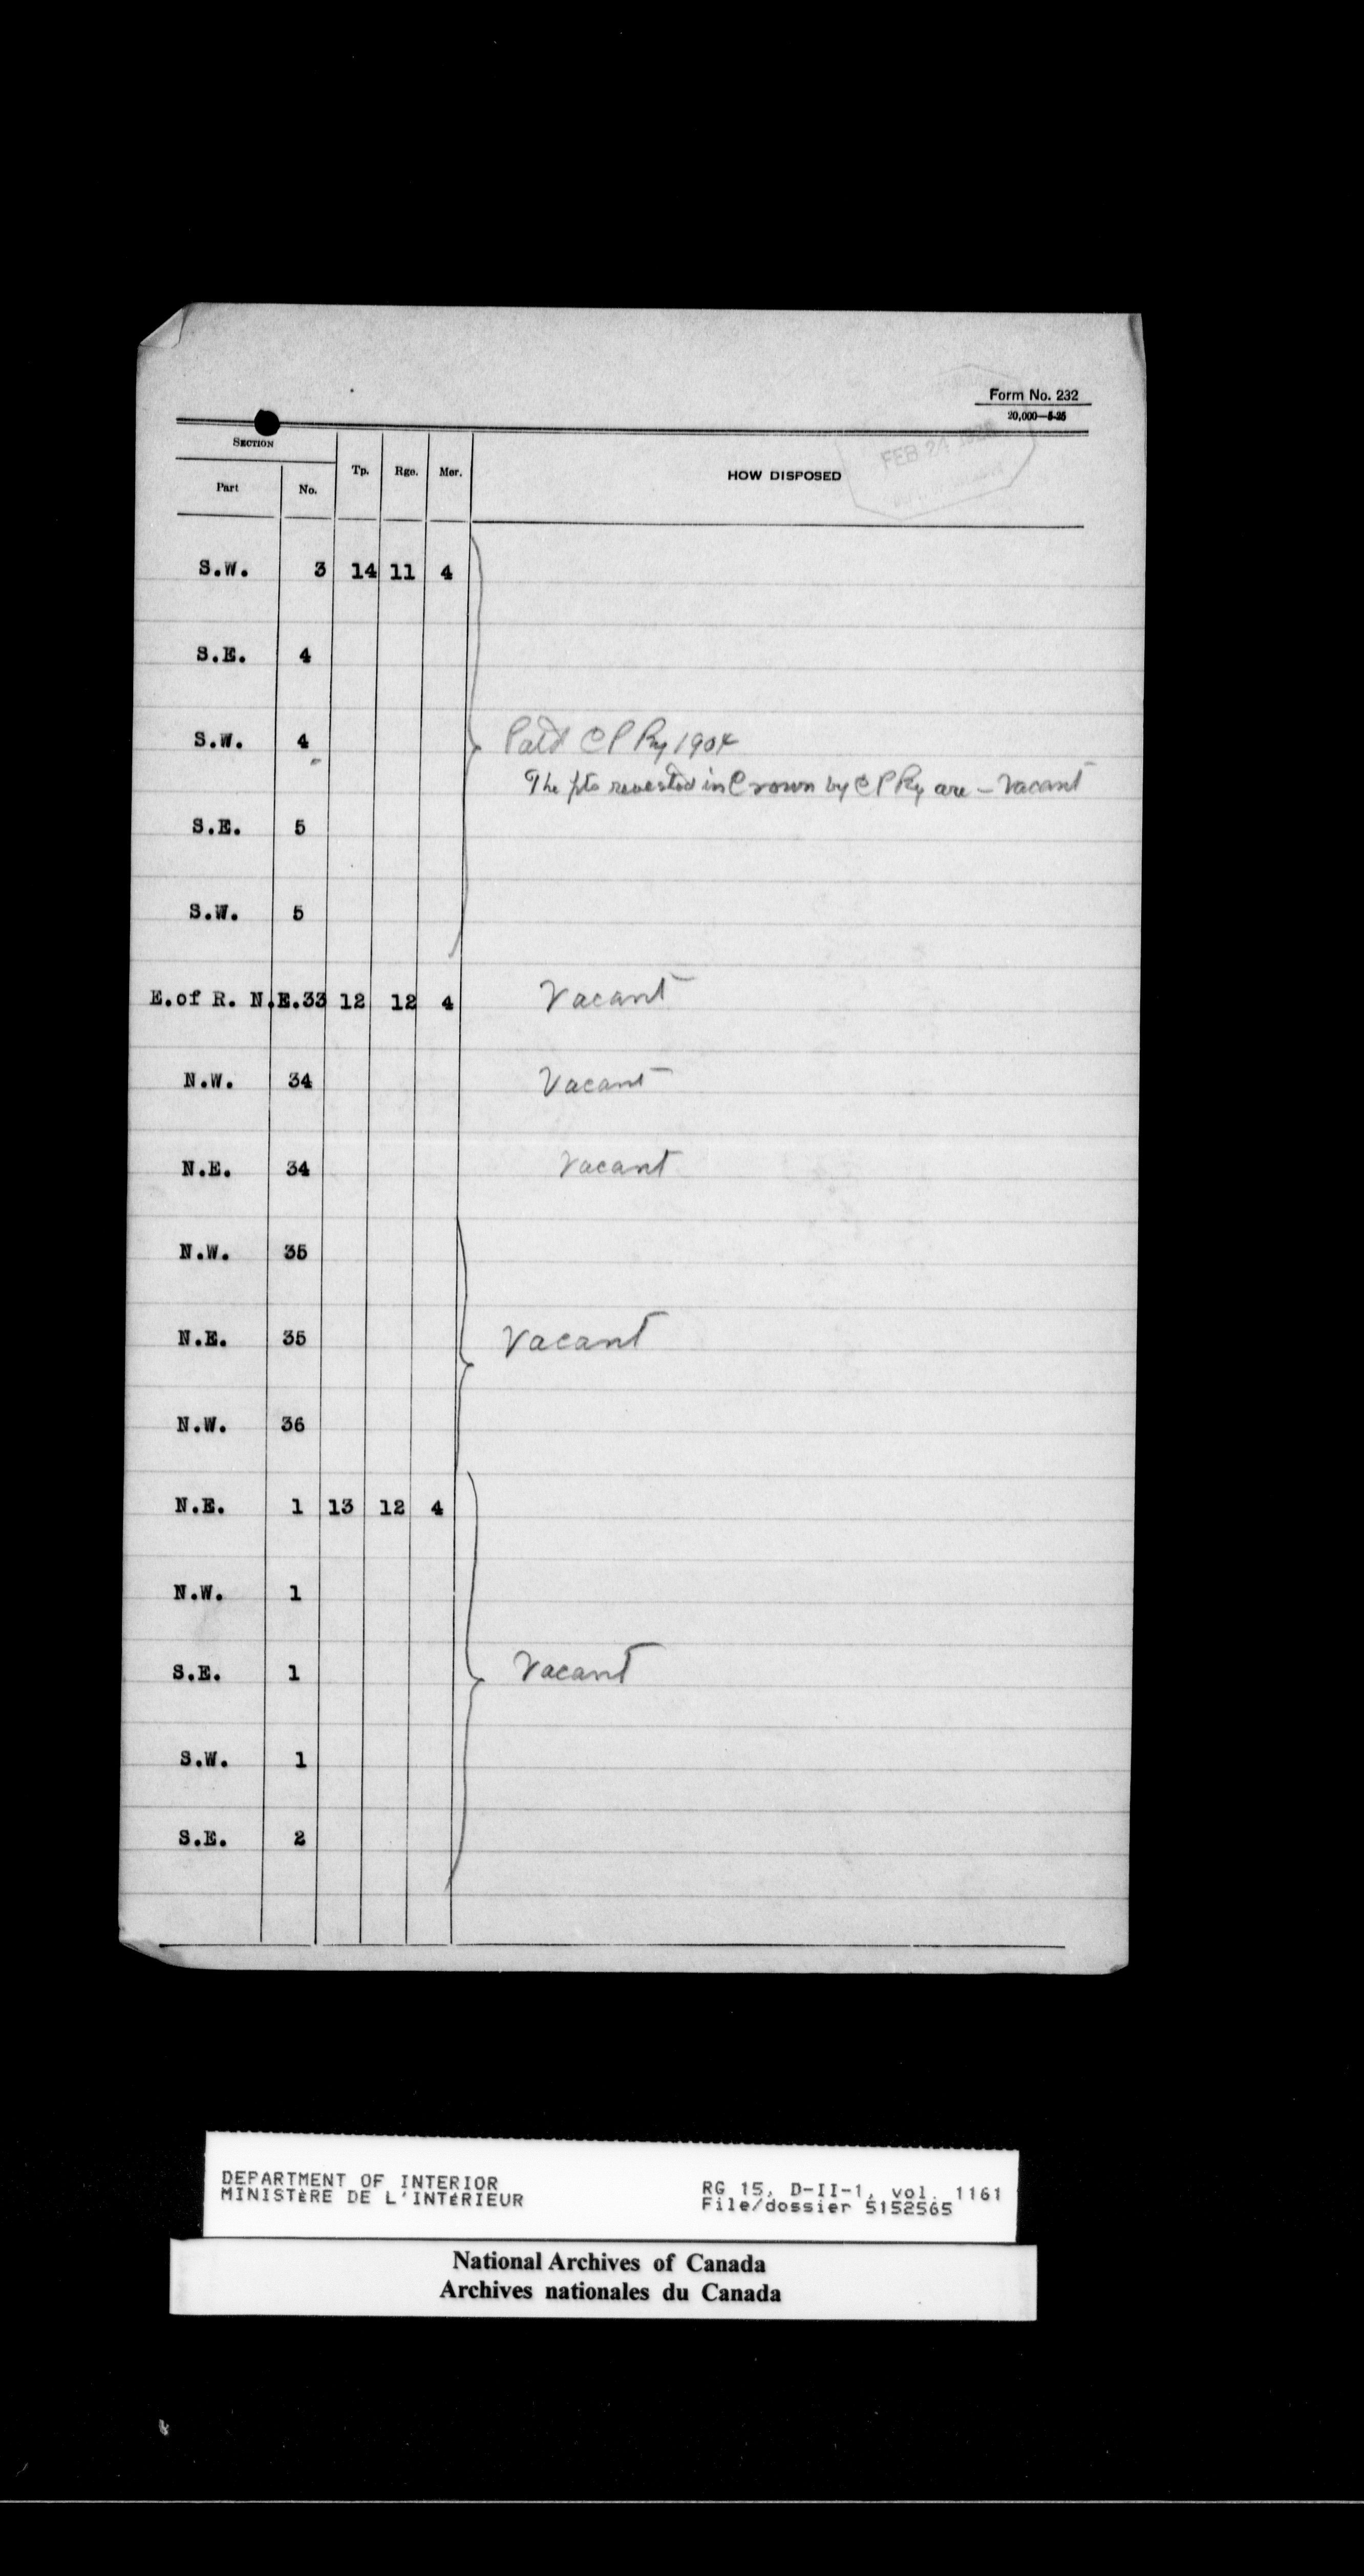 Form No. 232
20,000—5-25
SECTION
Part No. Tp. Rge. Mer. HOW DISPOSED
FEB 24
S.W. 3 14 11 4
S.E. 4
S.W. 4 Patd C P Ry 1904
The pts revested in Crown by C P Ry are - Vacant
S.E. 5
S.W. 5
E.of R. N.E.33 12 12 4 Vacant
N.W. 34 Vacant
N.E. 34 Vacant
N.W. 35
N.E. 35 Vacant
N.W. 36
N.E. 1 13 12 4
N.W. 1
S.E. 1 Vacant
S.W. 1
S.E. 2
DEPARTMENT OF INTERIOR
MINISTÈRE DE L'INTÉRIEUR
RG 15, D-II-1, vol. 1161
File/dossier 5152565
National Archives of Canada
Archives nationales du Canada